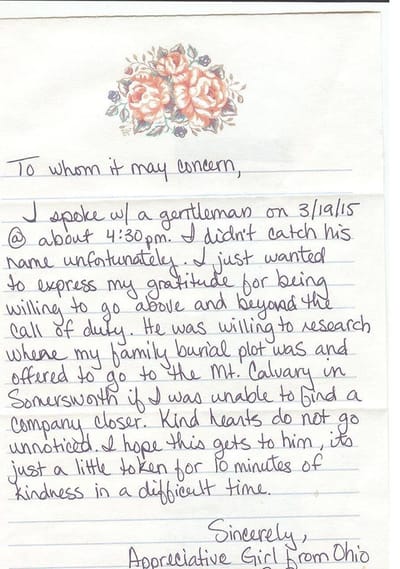 To whom it may concern,
I spoke w/ a gentleman on 3/19/15
@ about 4:30pm. I didn't catch his
name unfortunately. I just wanted
to express my gratitude for being
willing to go above and beyond the
call of duty. He was willing to research
where my family burial plot was and
offered to go to the Mt. Calvary in
Somersworth if I was unable to find a
company closer. Kind hearts do not go
unnoticed. I hope this gets to him, its
just a little token for 10 minutes of
kindness in a difficult time.
Sincerely,
Appreciative Girl From Ohio